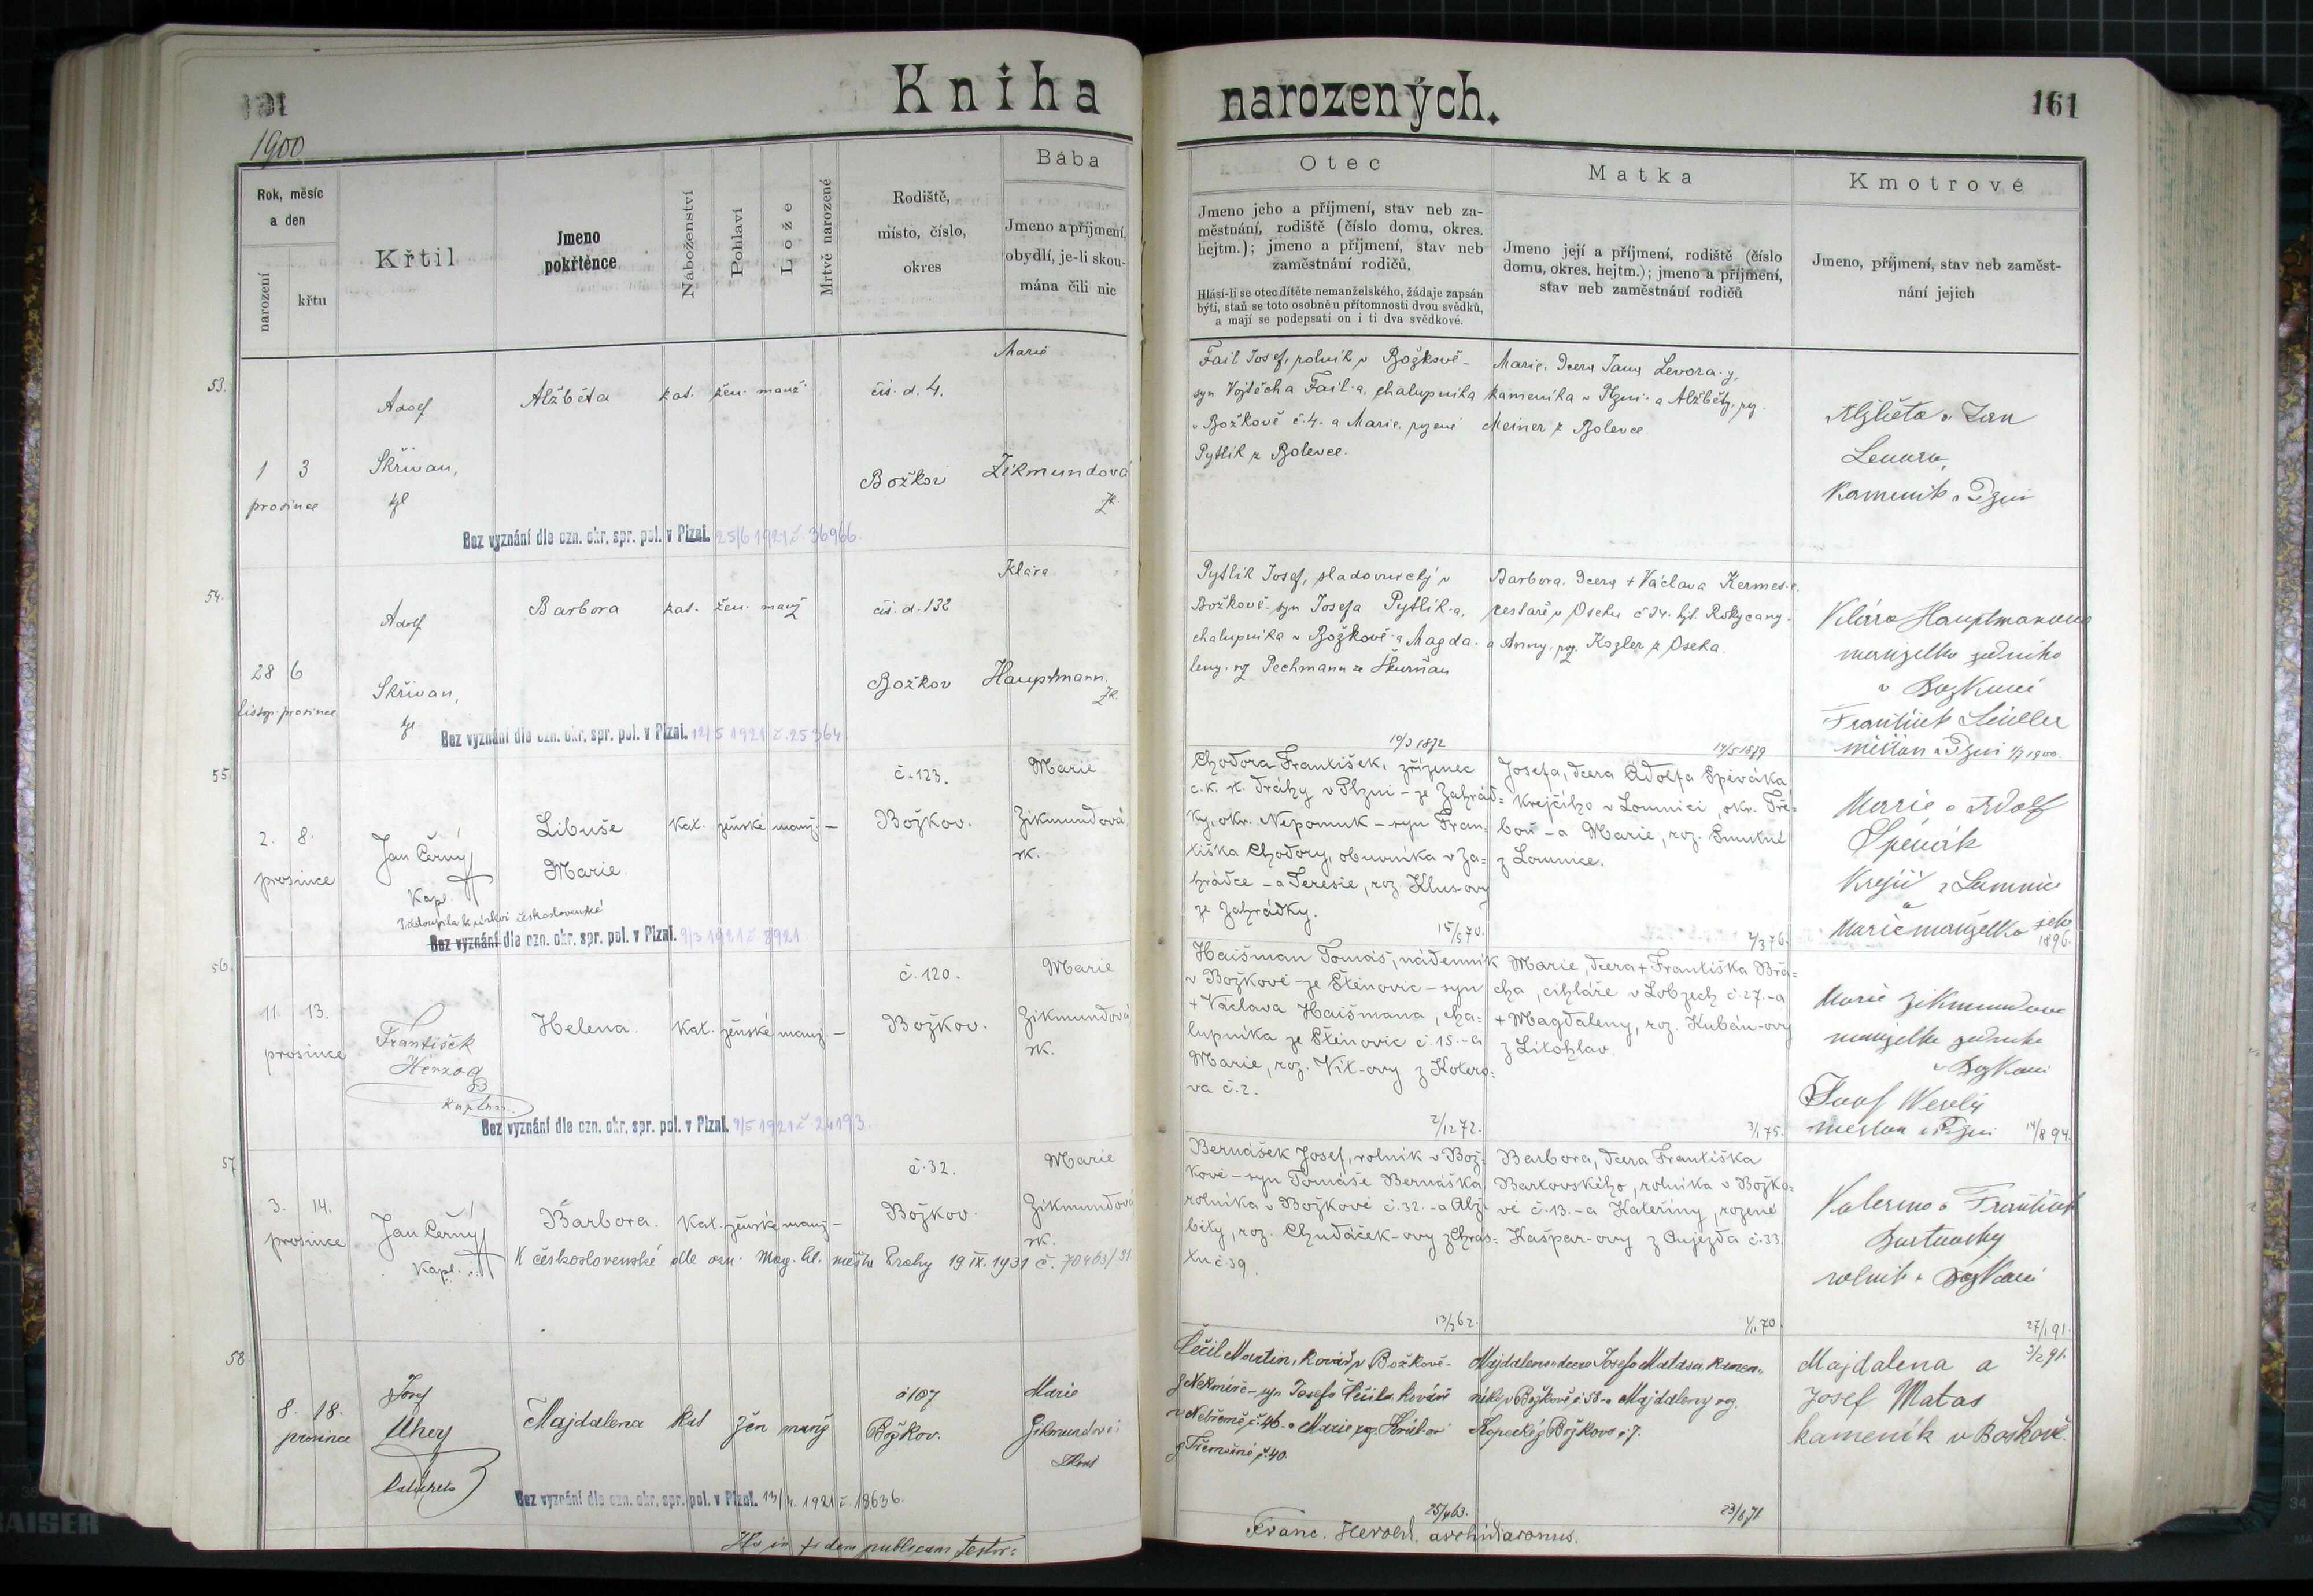 Kniha narozených.
161
1900
Rok, měsíc a den
narození
křtu
Křtil
Jmeno pokřtěnce
Náboženství
Pohlaví
Lože
Mrtvě narozené
Rodiště, místo, číslo, okres
Bába
Jmeno a příjmení, obydlí, je-li skoumána čili nic
Otec
Jmeno jeho a příjmení, stav neb za-
městnání, rodiště (číslo domu, okres.
hejtm.); jmeno a příjmení, stav neb
zaměstnání rodičů.
Hlásí-li se otec dítěte nemanželského, žádaje zapsán
býti, staň se toto osobně u přítomnosti dvou svědků,
a mají se podepsati on i ti dva svědkové.
Matka
Jmeno její a příjmení, rodiště (číslo
domu, okres. hejtm.); jmeno a příjmení,
stav neb zaměstnání rodičů
Kmotrové
Jmeno, příjmení, stav neb zaměst-
nání jejich
53.
1 3
prosince
Adolf
Skřivan,
Alžběta
kat. žen. manž.
čís. d. 4.
Božkov
Marie
Zikmundová
Fail Josef, rolník v Božkově -
syn Vojtěcha Fail-a, chalupníka
v Božkově č. 4. a Marie, rozené
Pytlík z Bolevce.
Marie, dcera Jana Levora-y,
kameníka v Plzni - a Alžběty, roz.
Meiner z Bolevce.
Alžběta a Jan
Levora,
Kameník v Plzni
Bez vyznání dle ozn. okr. spr. pol. v Plzni. 25/6 1921 č. 36966.
54.
28 6
listop. prosince
Adolf
Skřivan,
Barbora
kat. žen. manž
čís. d. 132
Božkov
Klára
Hauptmann.
Pytlík Josef, sladovnický v
Božkově - syn Josefa Pytlík-a,
chalupníka v Božkově - a Magda-
leny, roz Pechmann ze Škurňan
10/3 1872
Barbora, dcera + Václava Kermes-e,
cestaře v Oseku č 34. hjt. Rokycany -
a Anny, roz. Kozler z Oseka.
14/5 1879
Klára Hauptmanová
manželka zedníka
v Božkově
František Müller
měšťan v Plzni 1/7 1900.
Bez vyznání dle ozn. okr. spr. pol. v Plzni. 12/5 1921 č. 25364.
55.
2. 8.
prosince
Jan Černý
Kapl.
Libuše
Marie.
Kat. ženské manž. -
č. 123.
Božkov.
Marie
Zikmundová,
zk.
Chodora František, zřízenec
c. k. st. dráhy v Plzni - ze Zahrád=
ky, okr. Nepomuk - syn Fran=
tiška Chodory, obuvníka v Za=
hrádce - a Teresie, roz. Klus-ovy
ze Zahrádky.
15/5 70.
Josefa, dcera Adolfa Spěváka
Krejčího v Lomnici, okr. Tře=
boň - a Marie, roz. Smutné
z Lomnice.
2/3 76.
Marie a Adolf
Spěvák
Krejčí z Lomnice
a
Marie manželka jeho
1896.
Přistoupila k církvi československé
Bez vyznání dle ozn. okr. spr. pol. v Plzni. 9/3 1921 č 8921
56.
11. 13.
prosince
František
Herzog
kaplan.
Helena.
Kat. ženské manž. -
č. 120.
Božkov.
Marie
Zikmundová
zk.
Haišman Tomáš, nádenník
v Božkově - ze Štěnovic - syn
+ Václava Haišmana, cha=
lupníka ze Štěnovic č. 15. - a
Marie, roz. Vít-ovy z Kotero=
va č. 2.
2/12 72.
Marie, dcera + Františka Brá=
cha, cihláře v Lobzech č. 27. - a
+ Magdaleny, roz. Kubán-ovy
z Litohlav.
3/1 75.
Marie Zikmundova
manželka zedníka
v Božkově
Josef Veselý
měšťan v Plzni 14/8 94.
Bez vyznání dle ozn. okr. spr. pol. v Plzni. 9/5 1921 č. 24193.
57.
3. 14.
prosince
Jan Černý
Kapl.
Barbora.
Kat. ženské manž. -
č. 32.
Božkov.
Marie
Zikmundová
zk.
Bernášek Josef, rolník v Bož=
kově - syn Tomáše Bernáška
rolníka v Božkově č. 32. - a Alž=
běty, roz. Chudáček-ovy z Chrás=
tu č. 39.
13/3 62.
Barbora, dcera Františka
Bartovského, rolníka v Božko=
vě č. 13. - a Kateřiny, rozené
Kašpar-ovy z Oujezda č. 33.
1/11 70.
Kateřina a František
Bartovský
rolník v Božkově
27/1 91.
K československé dle ozn. Mag. hl. města Prahy 19 IX. 1931 č. 70463/31
58.
8. 18.
prosince
Josef
Uher
Majdalena
kat žen manž
č 107
Božkov.
Marie
Zikmundová
Čečil Martin, kovář v Božkově -
z Nekmíře - syn Josefa Čečila, kováře
v Nebřemě č. 46. a Marie roz. Král-ov
z Třemošné č. 40.
25/9 63.
Majdalena dcera Josefa Matasa, kamen=
níka v Božkově č. 58. a Majdaleny roz.
Kopecké z Božkova č. 7.
23/6 71
Majdalena a 3/2 91.
Josef Matas
kameník v Božkově.
Bez vyznání dle ozn. okr. spr. pol. v Plzni. 13/4. 1921 č. 18636.
In fidem publicam testor:
Franc. Herold, archidiaconus.